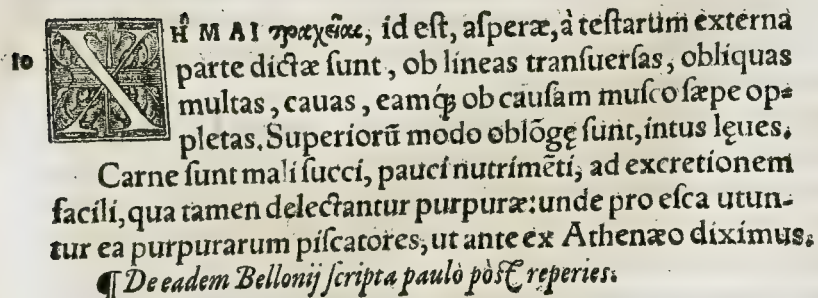 ΧΗ͂ΜΑΙ τραχεῖαι, id eſt, aſperæ, à teſtarum externa
10 parte dictæ ſunt, ob lineas tranſuerſas, obliquas
multas, cauas, eamq́ꝫ ob cauſam muſco ſæpe op=
pletas. Superiorũ modo oblõgę ſunt, intus lęues.
Carne ſunt mali ſucci, pauci nutrimẽti, ad excretionem
facili, qua tamen delectantur purpuræ: unde pro eſca utun-
tur ea purpurarum piſcatores, ut ante ex Athenæo diximus.
¶ De eadem Bellonij ſcripta paulò pòſt reperies.